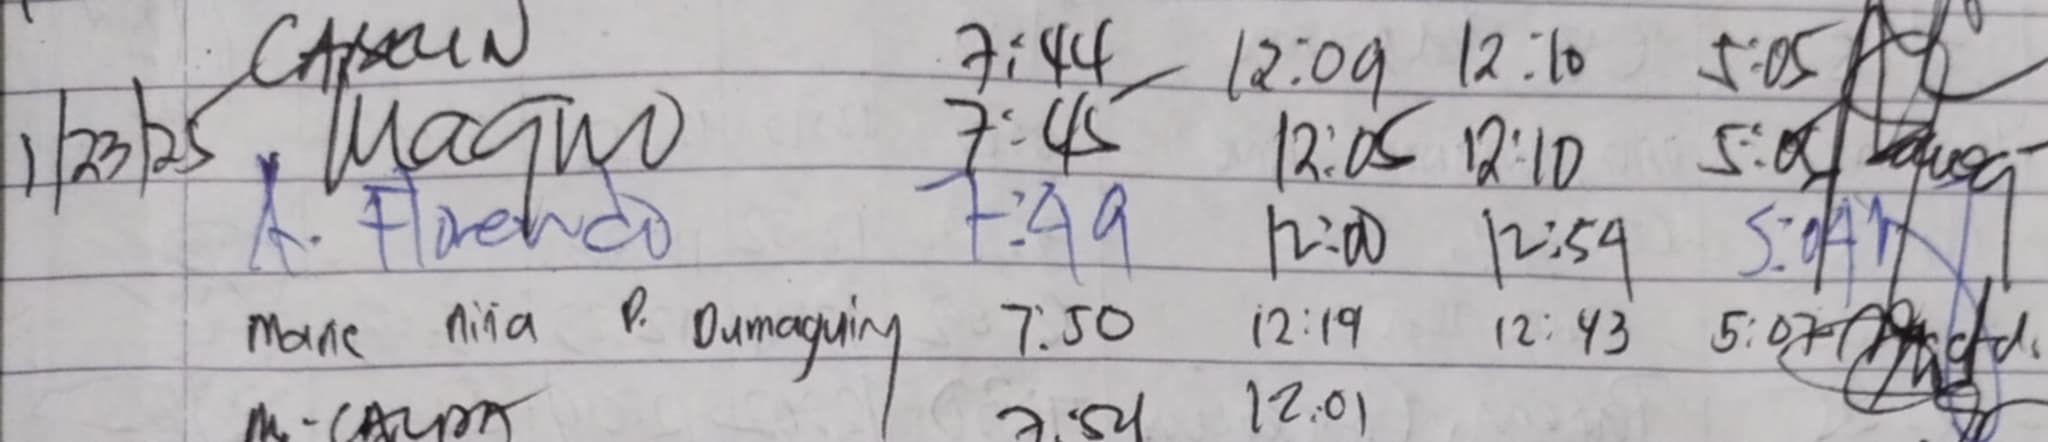 7:44 12:09 12:10 5:05
1/23/25 Maqwo 7:45 12:05 12:10 5:05
A. Florendo 7:49 12:00 12:54 5:04
Marie niña P. Dumaguing 7:50 12:19 12:43 5:07
12:01